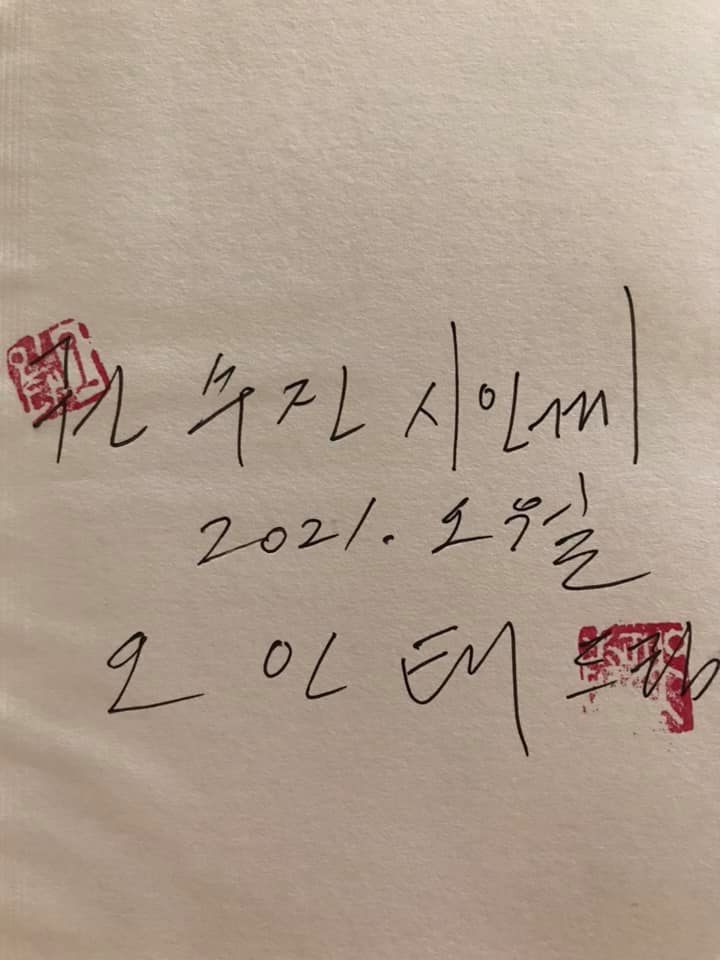 권 수 진 시인께
2021. 오월
오 인 태 드림